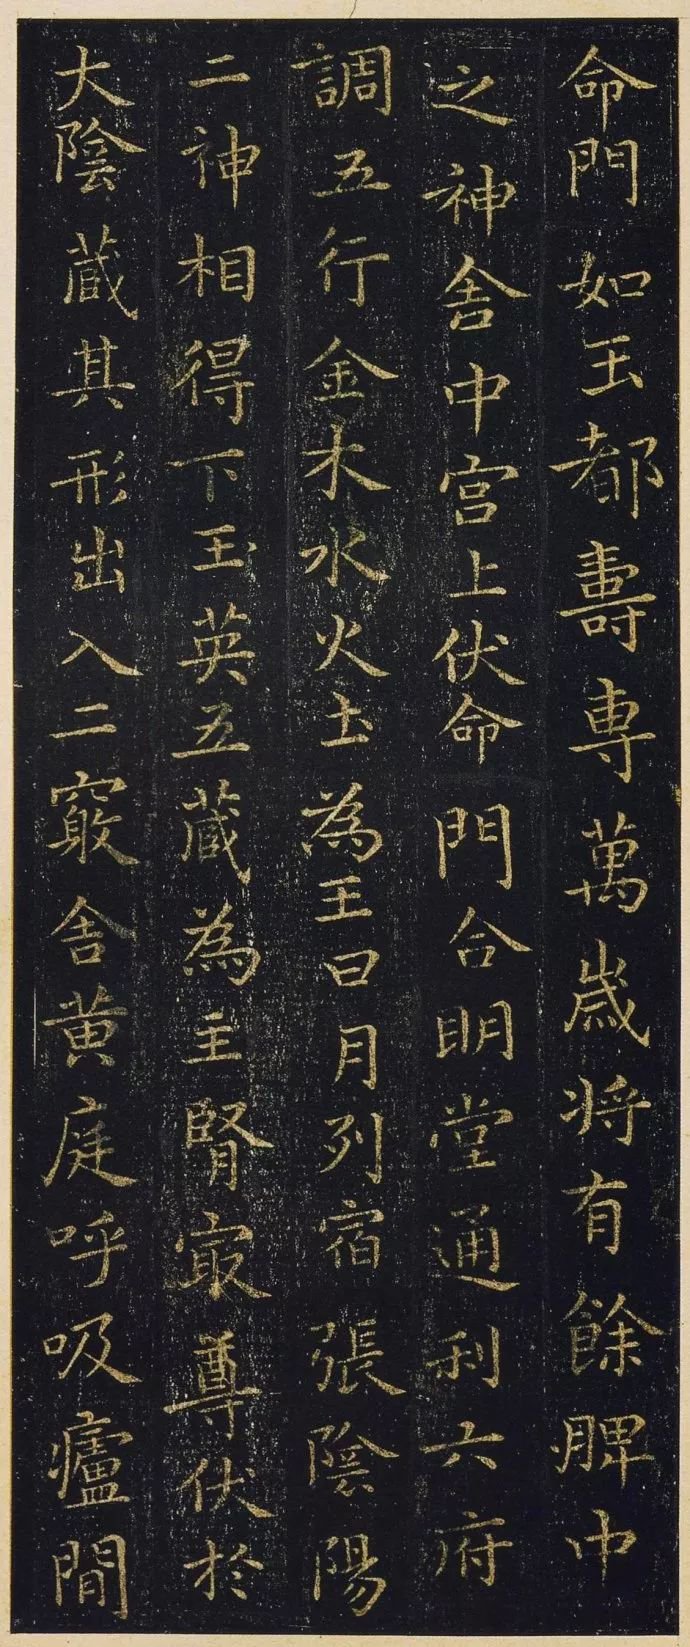 命門如玉都壽專萬歲將有餘脾中
之神舍中宮上伏命門合明堂通利六府
調五行金木水火土為王日月列宿張陰陽
二神相得下玉英五藏為主腎㝡尊伏於
大陰藏其形出入二竅舍黃庭呼吸廬間